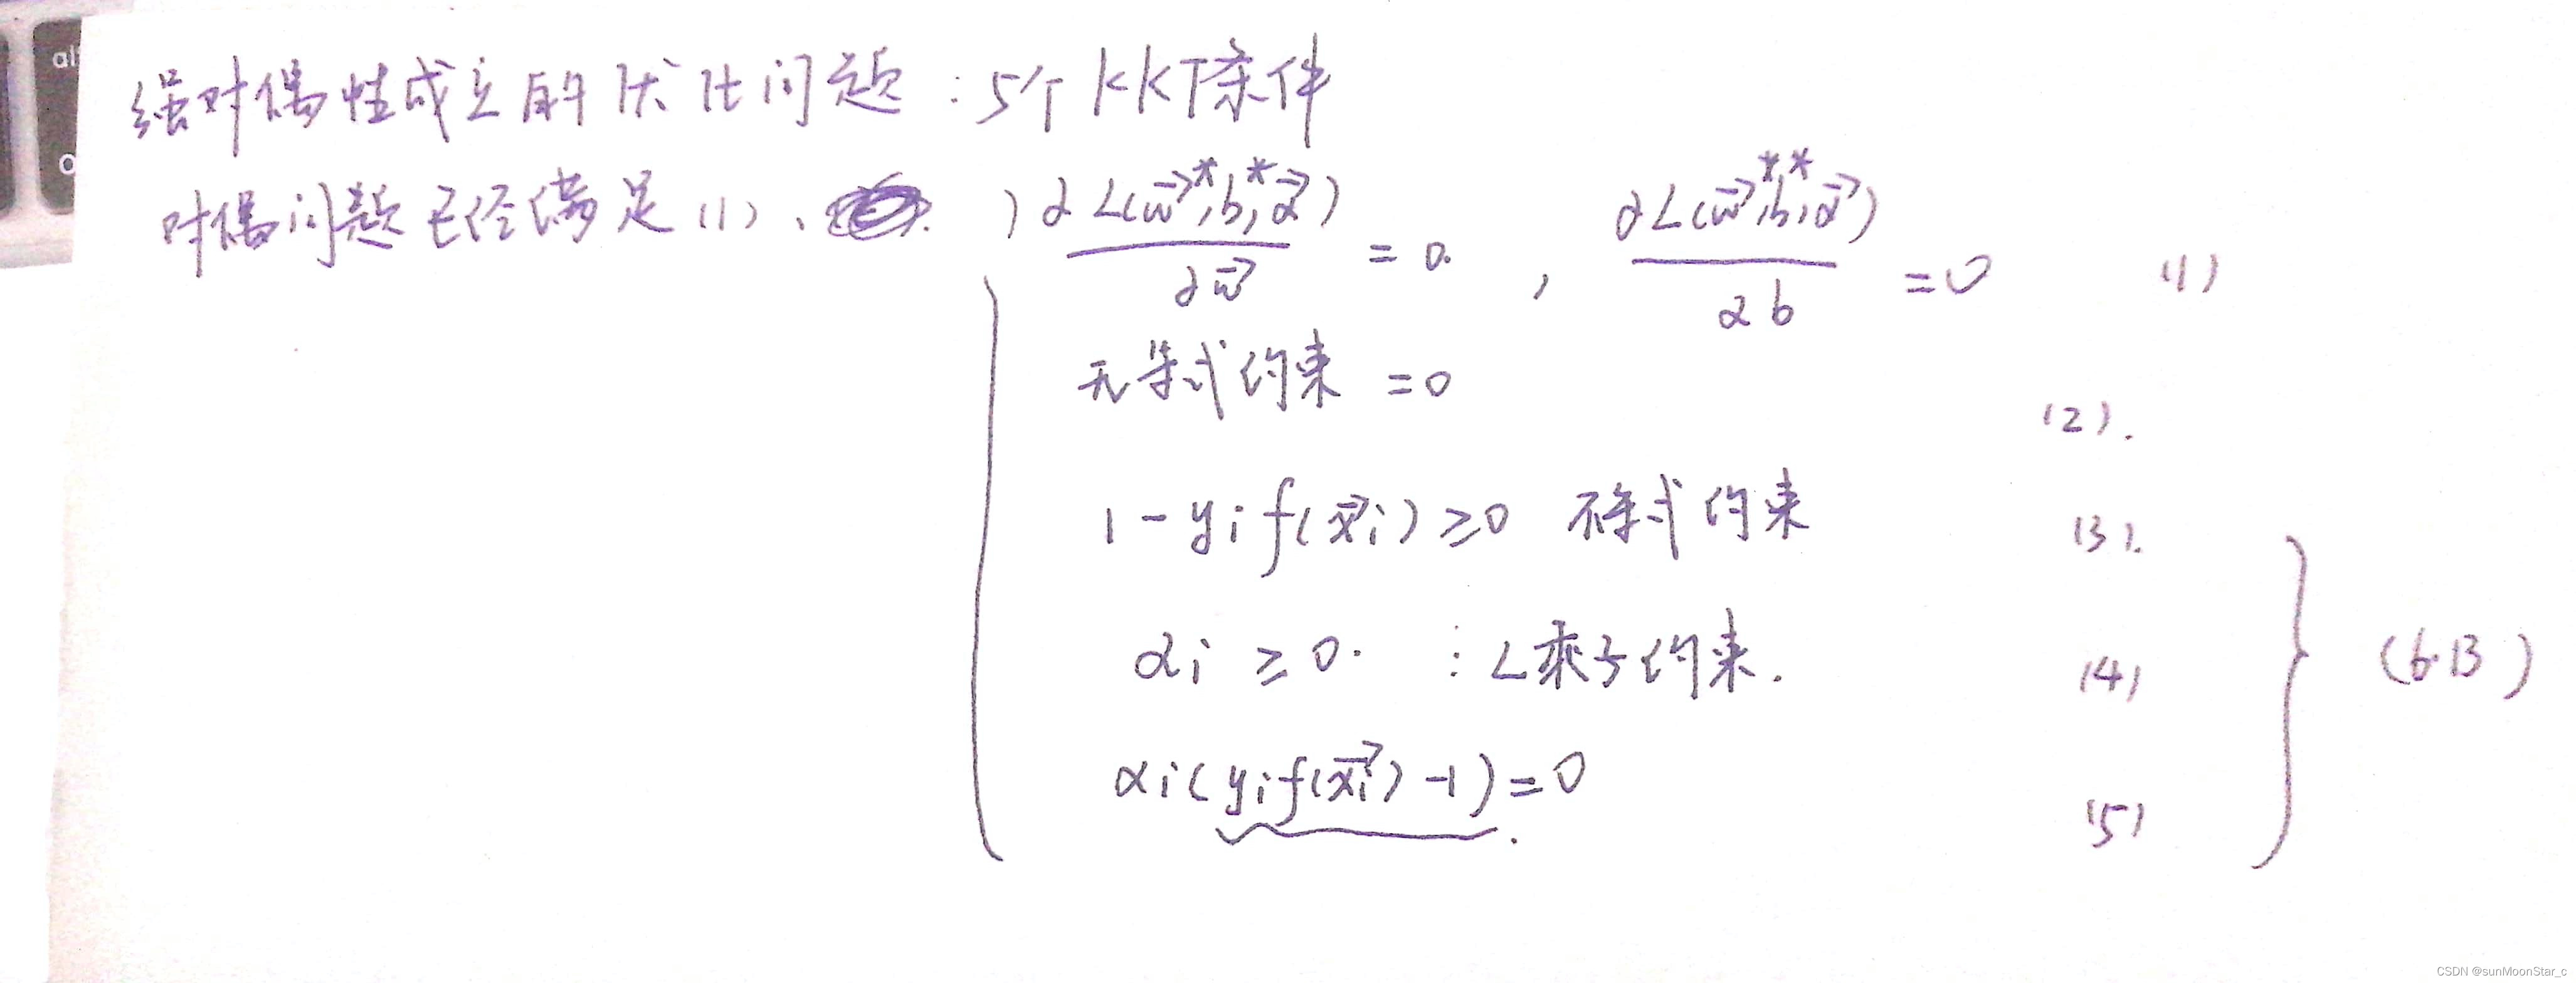 强对偶性成立的优化问题：5个KKT条件
对偶问题已经满足(1)、
∂L(w⃗*,b*,α⃗)/∂w⃗ = 0. , ∂L(w⃗*,b*,α⃗)/∂b = 0 (1)
无等式约束 =0 (2).
1-yif(x⃗i)≥0 不等式约束 (3).
αi ≥0. : L乘子约束. (4)
αi(yif(x⃗i)-1)=0 . (5)
(6.13)
al
o
CSDN @sunMoonStar_c